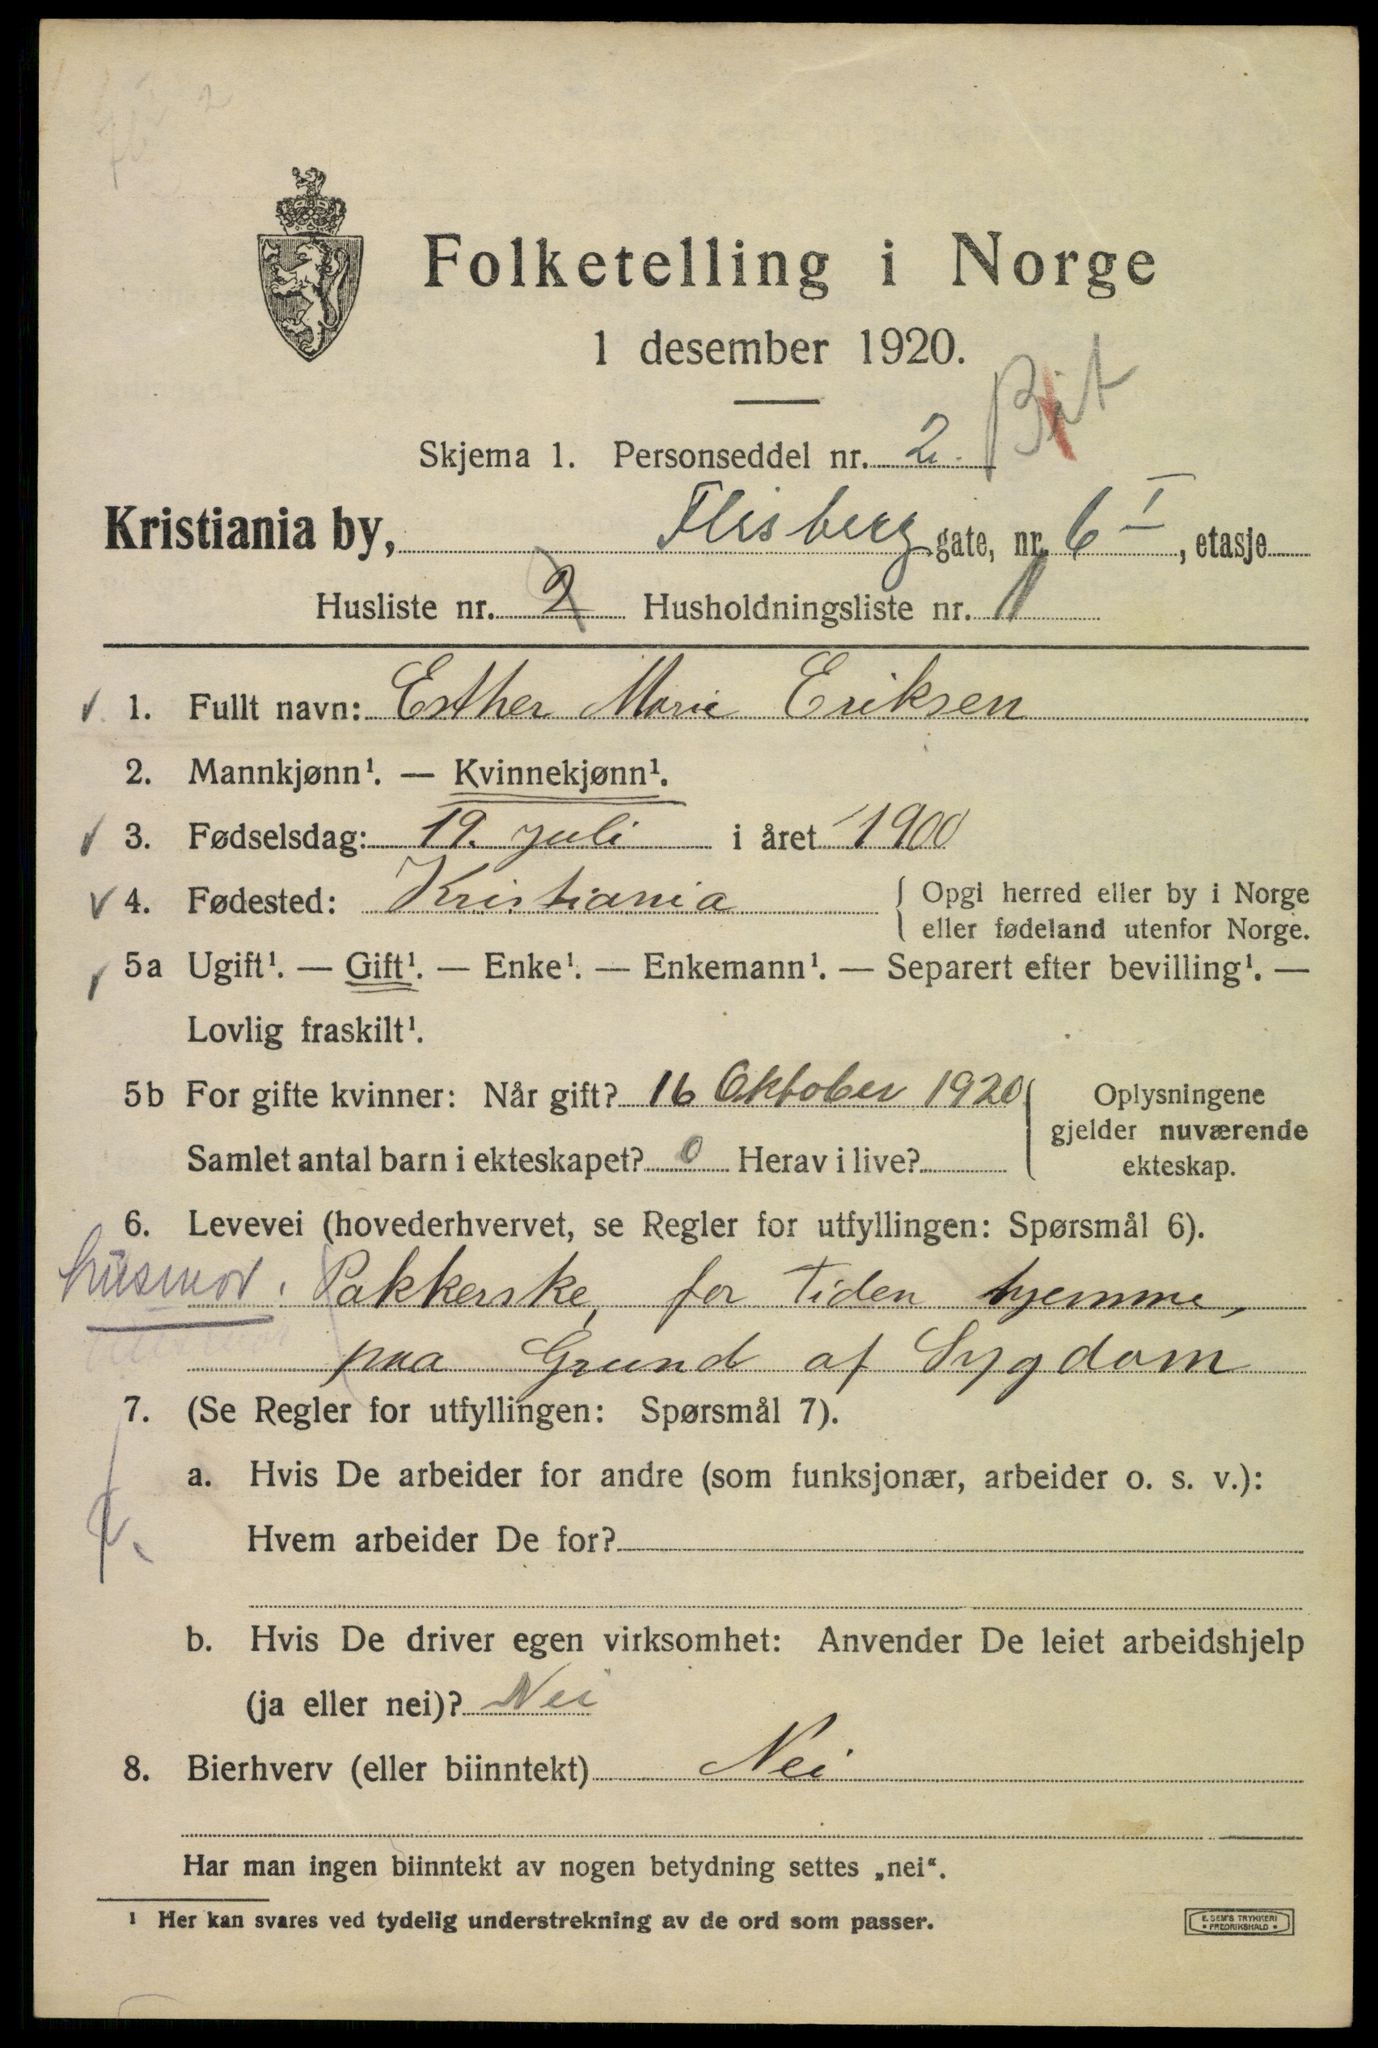 Folketelling i Norge
1 desember 1920.
Skjema 1. Personseddel nr. 2.
Kristiania by, Flisberg gate, nr. 6 I, etasje
Husliste nr. 2 Husholdningsliste nr. 1
1. Fullt navn: Esther Marie Eriksen
2. Mannkjønn¹. — Kvinnekjønn¹.
3. Fødselsdag: 19. juli i året 1900
4. Fødested: Kristiania { Opgi herred eller by i Norge
eller fødeland utenfor Norge.
5a Ugift¹. — Gift¹. — Enke¹. — Enkemann¹. — Separert efter bevilling¹. —
Lovlig fraskilt¹.
5b For gifte kvinner: Når gift? 16 Oktober 1920
Samlet antal barn i ekteskapet? 0 Herav i live?
Oplysningene
gjelder nuværende
ekteskap.
6. Levevei (hovederhvervet, se Regler for utfyllingen: Spørsmål 6).
husmor. Pakkerske, for tiden hjemme,
paa Grund af Sygdom
7. (Se Regler for utfyllingen: Spørsmål 7).
a. Hvis De arbeider for andre (som funksjonær, arbeider o. s. v.):
Hvem arbeider De for?
b. Hvis De driver egen virksomhet: Anvender De leiet arbeidshjelp
(ja eller nei)? Nei
8. Bierhverv (eller biinntekt) Nei
Har man ingen biinntekt av nogen betydning settes „nei“.
¹ Her kan svares ved tydelig understrekning av de ord som passer.
E. SEM'S TRYKKERI
• FREDRIKSHALD •